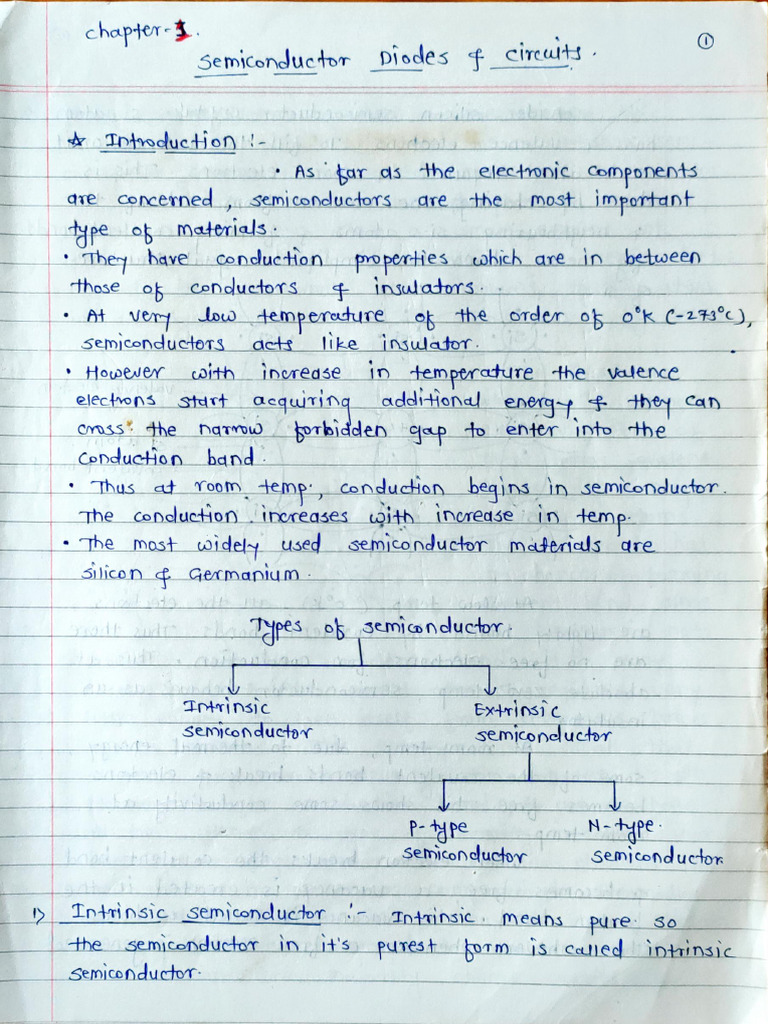 chapter-1.
①
Semiconductor Diodes & circuits.
☆ Introduction :-
• As far as the electronic components
are concerned, semiconductors are the most important
type of materials.
• They have conduction properties which are in between
those of conductors & insulators.
• At very low temperature of the order of 0°K (-273°C),
semiconductors acts like insulator.
• However with increase in temperature the valence
electrons start acquiring additional energy & they can
cross the narrow forbidden gap to enter into the
conduction band.
• Thus at room temp., conduction begins in semiconductor.
The conduction increases with increase in temp.
• The most widely used semiconductor materials are
silicon & Germanium.
Types of semiconductor.
Intrinsic Extrinsic
semiconductor semiconductor
P-type N-type.
semiconductor semiconductor.
1) Intrinsic semiconductor :- Intrinsic means pure so
the semiconductor in it's purest form is called intrinsic
semiconductor.